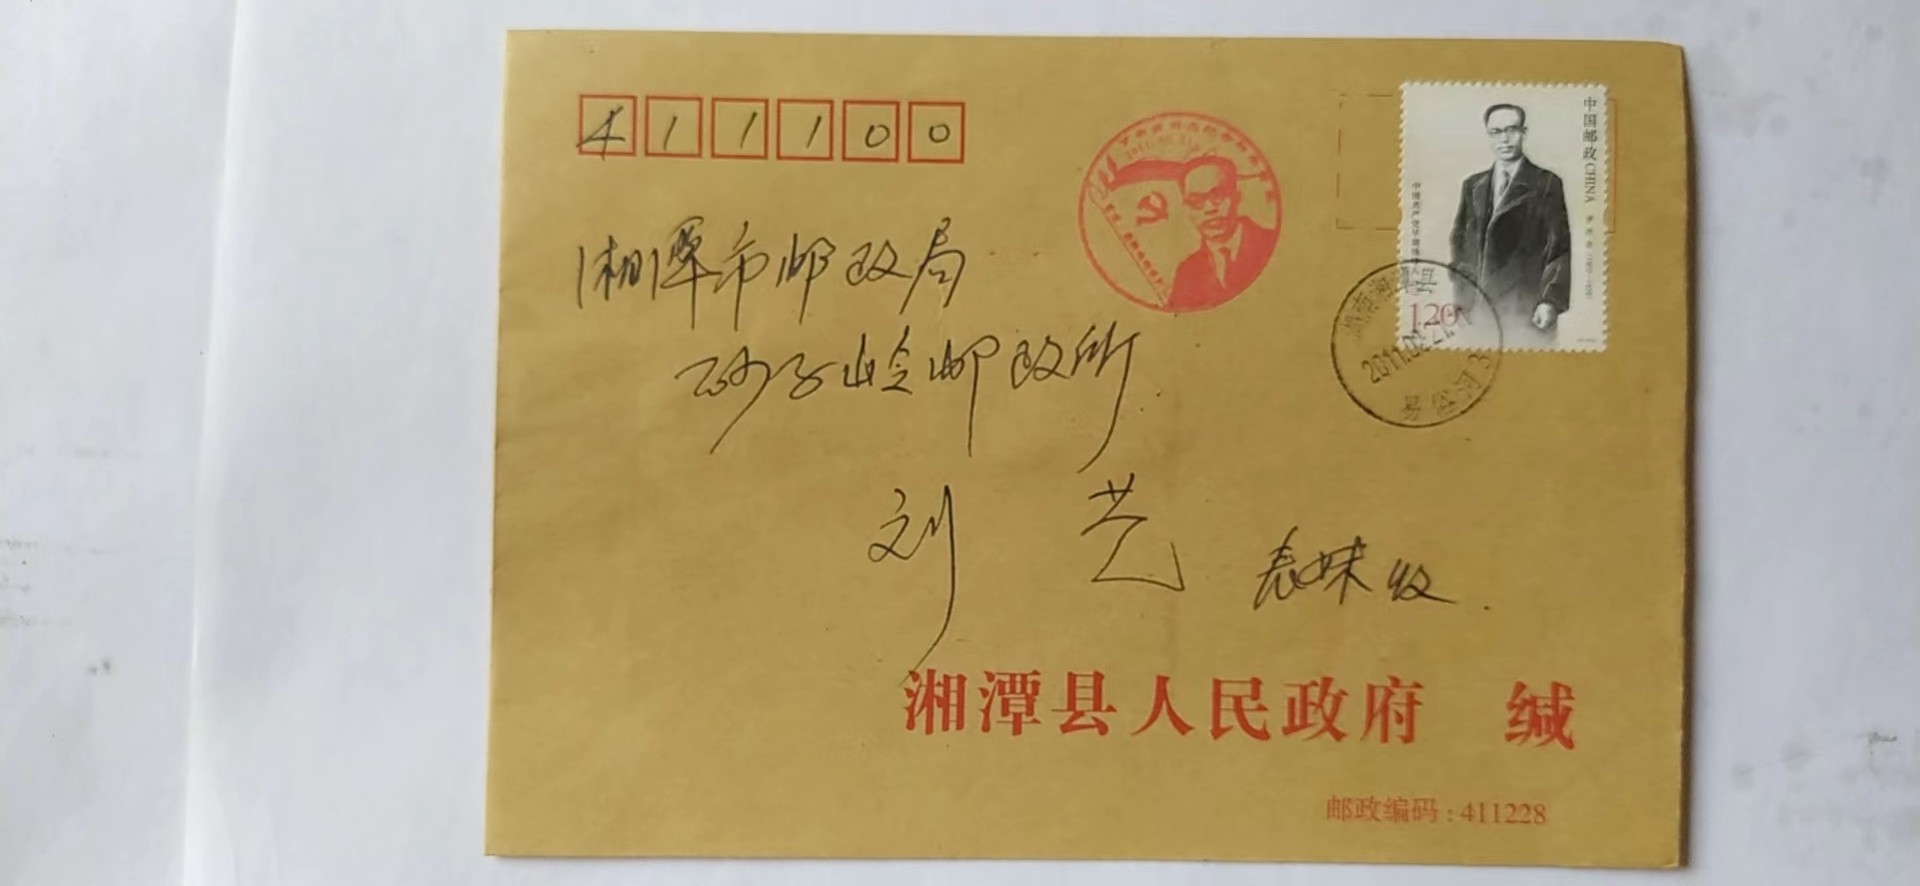 411100
湘潭市邮政局
砂子岭邮政所
刘艺 表妹收
湘潭县人民政府 缄
邮政编码:411228
中国邮政CHINA
120
湖南湘潭县
易俗河3